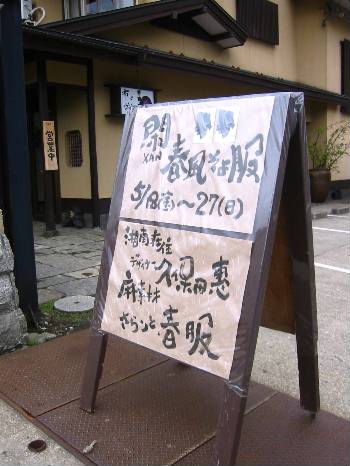 XAN
春風そよ服
5/18(金)～27(日)
湘南在住
デザイナー 久保田 恵
麻素材
さらりと、春服
営業中